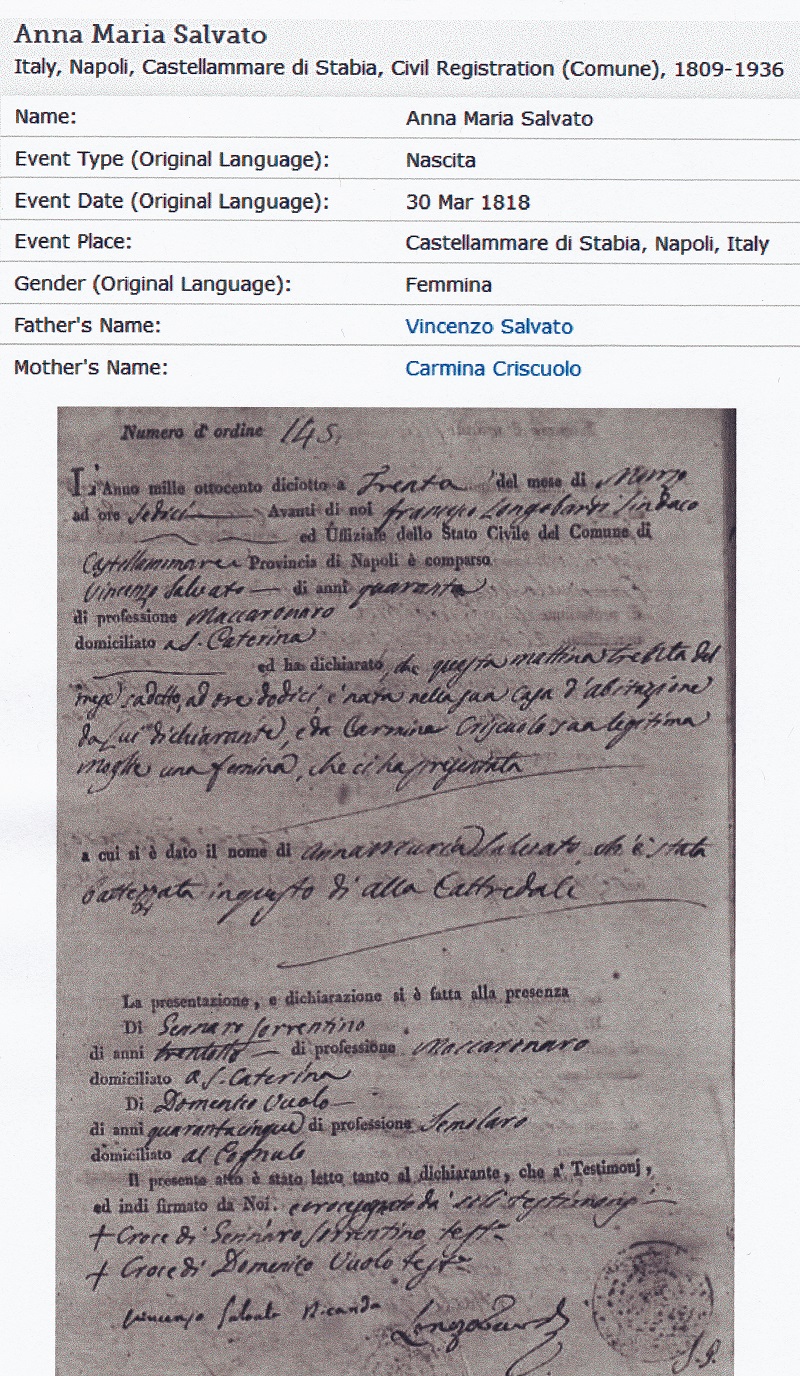 Anna Maria Salvato
Italy, Napoli, Castellammare di Stabia, Civil Registration (Comune), 1809-1936
Name: Anna Maria Salvato
Event Type (Original Language): Nascita
Event Date (Original Language): 30 Mar 1818
Event Place: Castellammare di Stabia, Napoli, Italy
Gender (Original Language): Femmina
Father's Name: Vincenzo Salvato
Mother's Name: Carmina Criscuolo
Numero d' ordine 145.
L'Anno mille ottocento diciotto a Trenta del mese di Marzo
ad ore sedici Avanti di noi Francesco Longobardi Sindaco
ed Uffiziale dello Stato Civile del Comune di
Castellammare Provincia di Napoli è comparso
Vincenzo Salvato di anni quaranta
di professione Maccaronaro
domiciliato a S. Caterina
ed ha dichiarato, che questa mattina trenta del
mese sadetto, ad ore dodici, è nata nella sua casa d'abitazione
da Lui dichiarante, e da Carmina Criscuolo sua legitima
moglie una femina, che ci ha presentata
a cui si è dato il nome di Annamaria Salvato, ch'è stata
battezzata in questo dì alla Cattredale
La presentazione, e dichiarazione si è fatta alla presenza
Di Gennaro Sorrentino
di anni trentotto di professione Maccaronaro
domiciliato a S. Caterina
Di Domenico Vuolo
di anni quarantacinque di professione Semolaro
domiciliato al
Il presente atto è stato letto tanto al dichiarante, che a' Testimonj,
ed indi firmato da Noi. e crocesegnato da' soli testimonj
+ Croce di Gennaro Sorrentino test.e
+ Croce di Domenico Vuolo test.e
Vincenzo Salvato
Longobardi